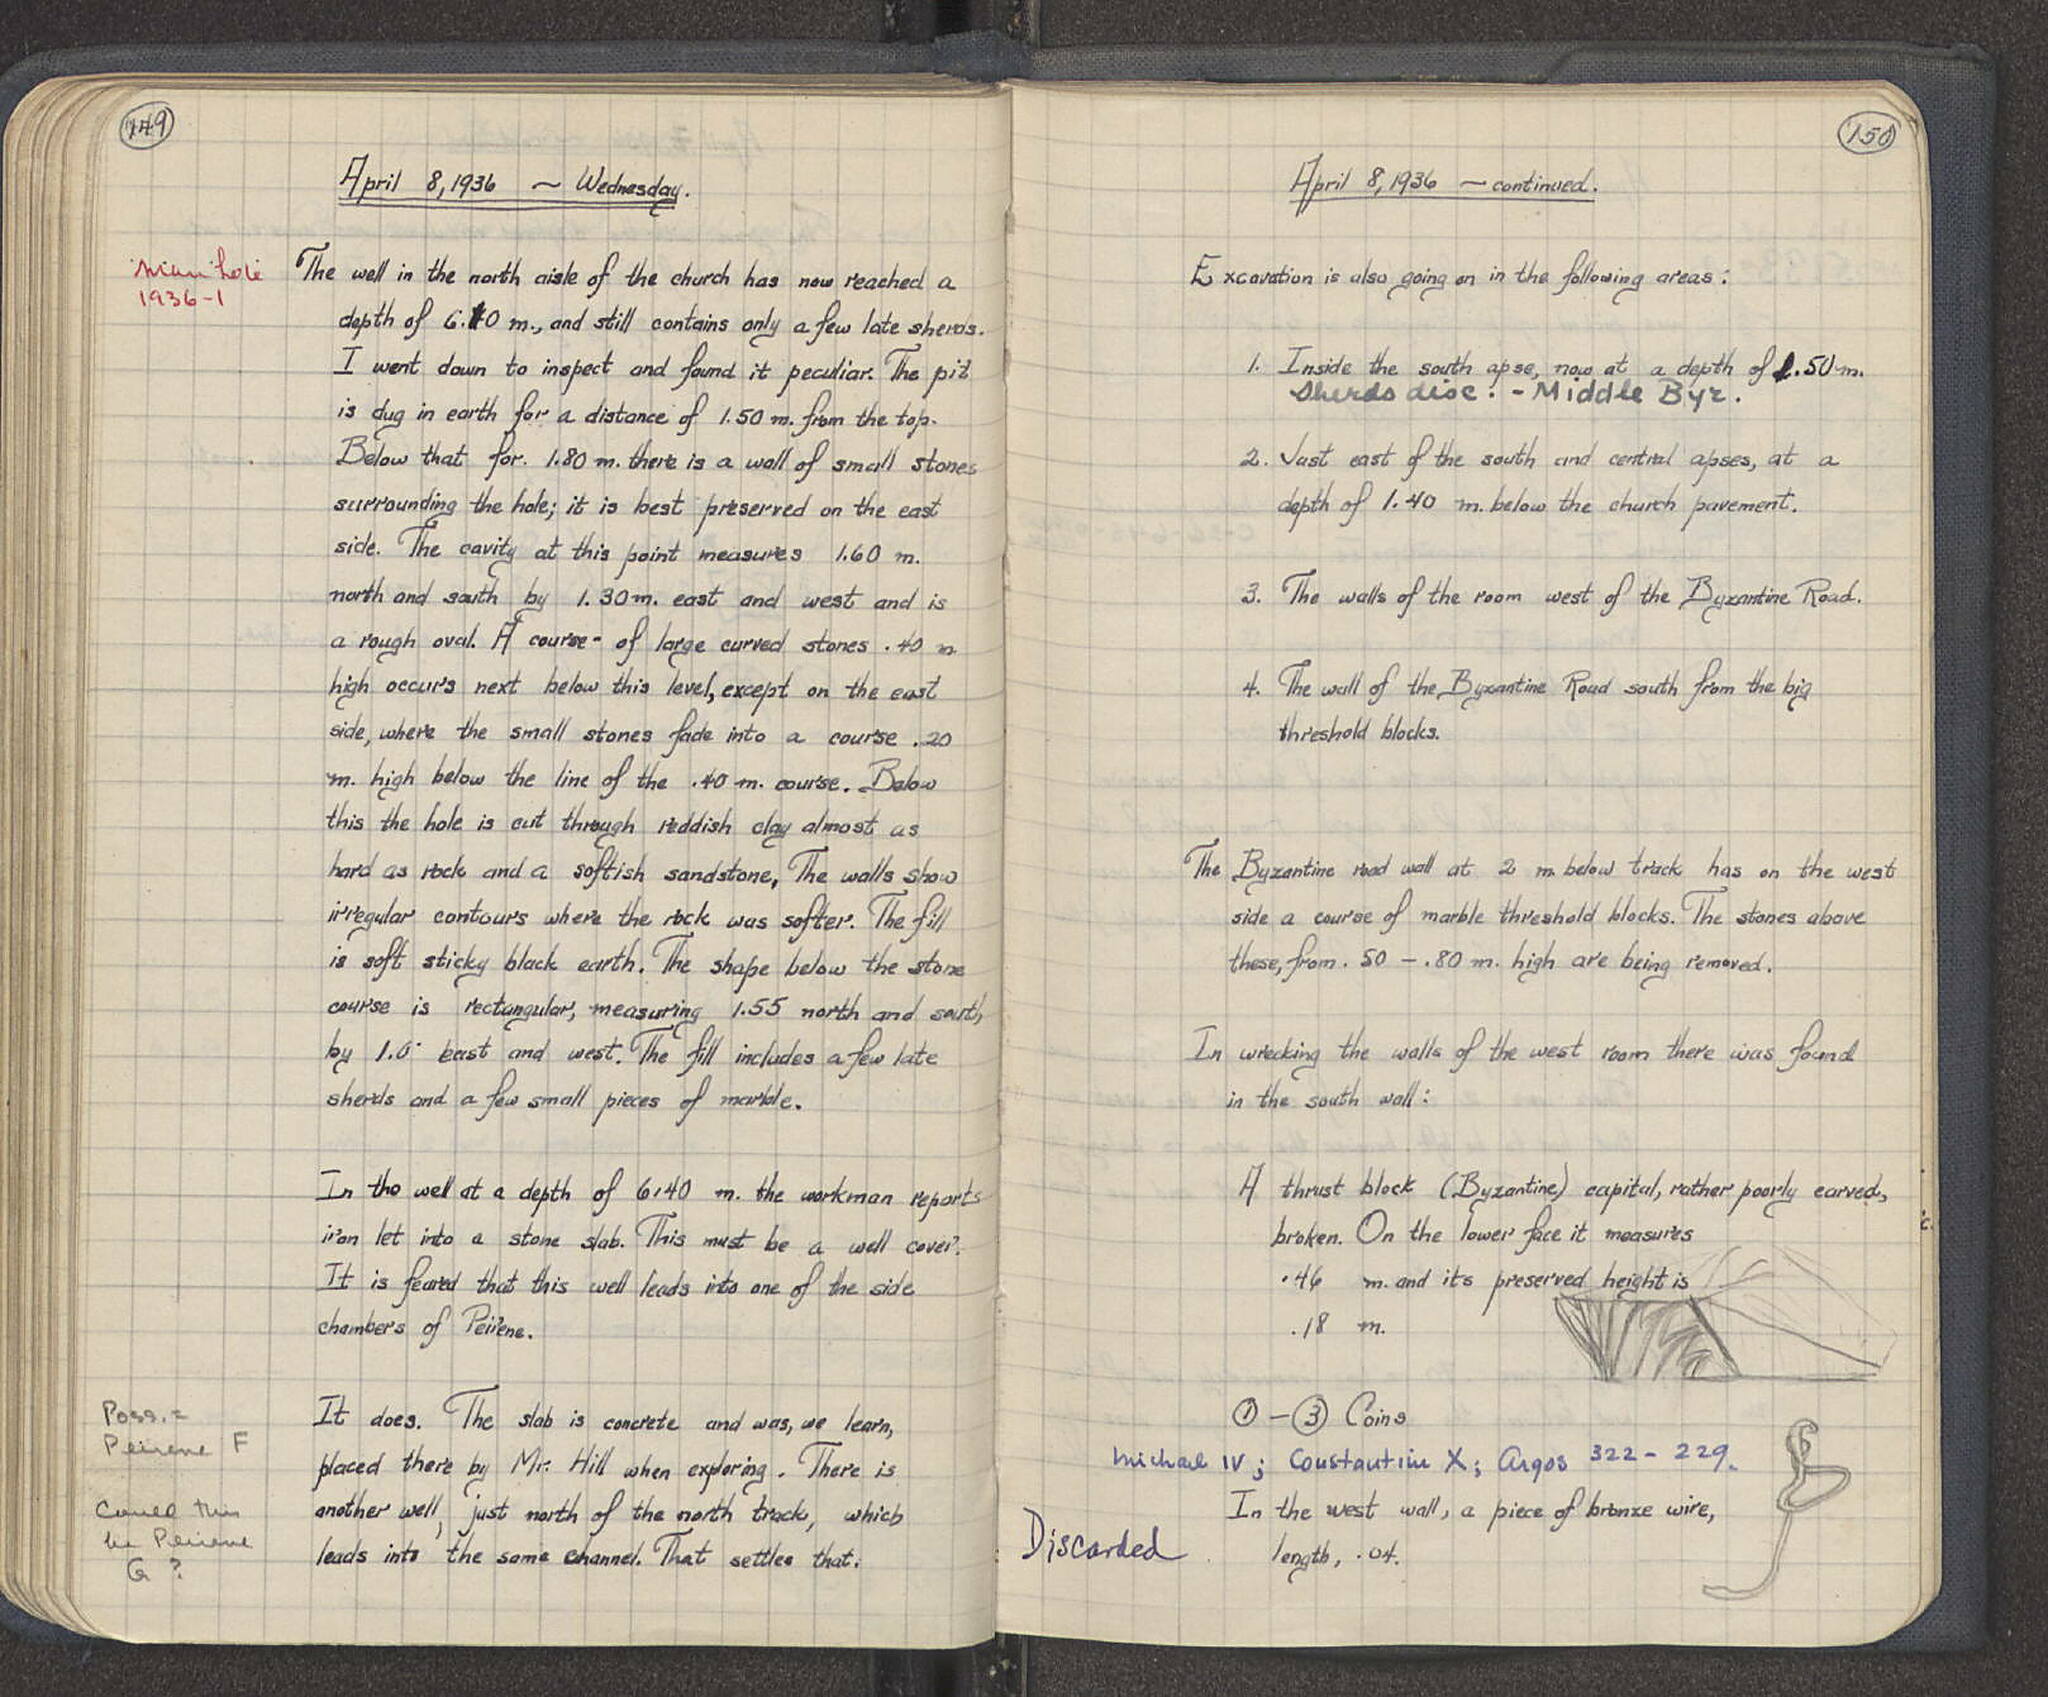 149
April 8, 1936 ~ Wednesday.
Manhole
1936-1
The well in the north aisle of the church has now reached a
depth of 6.10 m., and still contains only a few late sherds.
I went down to inspect and found it peculiar. The pit
is dug in earth for a distance of 1.50 m. from the top.
Below that for. 1.80 m. there is a wall of small stones
surrounding the hole; it is best preserved on the east
side. The cavity at this point measures 1.60 m.
north and south by 1.30 m. east and west and is
a rough oval. A course of large curved stones .40 m
high occurs next below this level, except on the east
side, where the small stones fade into a course .20
m. high below the line of the .40 m. course. Below
this the hole is cut through reddish clay almost as
hard as rock and a softish sandstone, The walls show
irregular contours where the rock was softer. The fill
is soft sticky black earth. The shape below the stone
course is rectangular, measuring 1.55 north and south,
by 1.0 east and west. The fill includes a few late
sherds and a few small pieces of marble.
In the well at a depth of 6.40 m. the workman reports
iron let into a stone slab. This must be a well cover.
It is feared that this well leads into one of the side
chambers of Peirene.
Poss. =
Peirene F
It does. The slab is concrete and was, we learn,
placed there by Mr. Hill when exploring. There is
another well, just north of the north track, which
leads into the same channel. That settles that.
Could this
be Peirene
G ?
150
April 8, 1936 - continued.
Excavation is also going on in the following areas:
1. Inside the south apse, now at a depth of 1.50 m.
Sherds disc. - Middle Byz.
2. Just east of the south and central apses, at a
depth of 1.40 m. below the church pavement.
3. The walls of the room west of the Byzantine Road.
4. The wall of the Byzantine Road south from the big
threshold blocks.
The Byzantine road wall at 2 m. below track has on the west
side a course of marble threshold blocks. The stones above
these, from .50 - .80 m. high are being removed.
In wrecking the walls of the west room there was found
in the south wall:
A thrust block (Byzantine) capital, rather poorly carved,
broken. On the lower face it measures
.46 m. and its preserved height is
.18 m.
① - ③ Coins
Michael IV; Constantine X; Argos 322 - 229.
In the west wall, a piece of bronze wire,
length, .04.
Discarded